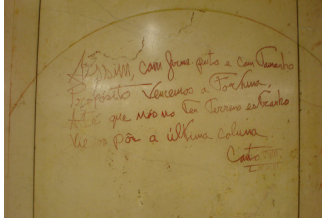 Assim, com firme peito e com Tamanho
Propósito Vencemos a Fortuna,
Até que nós no Teu Terreno estranho
pôr a última coluna
Canto